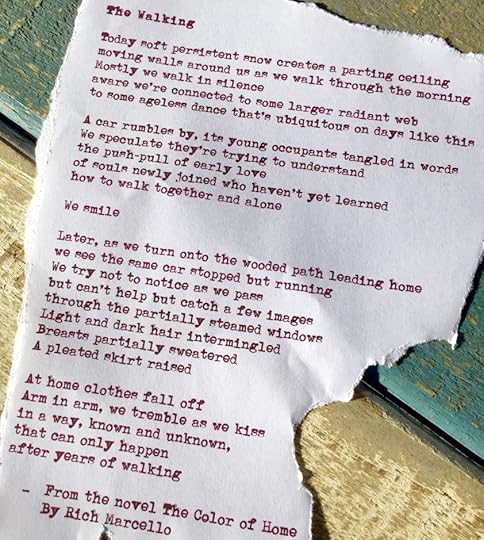 The Walking
Today soft persistent snow creates a parting ceiling
moving walls around us as we walk through the morning
Mostly we walk in silence
aware we're connected to some larger radiant web
to some ageless dance that's ubiquitous on days like this
A car rumbles by, its young occupants tangled in words
We speculate they're trying to understand
the push-pull of early love
of souls newly joined who haven't yet learned
how to walk together and alone
We smile
Later, as we turn onto the wooded path leading home
we see the same car stopped but running
We try not to notice as we pass
but can't help but catch a few images
through the partially steamed windows
Light and dark hair intermingled
Breasts partially sweatered
A pleated skirt raised
At home clothes fall off
Arm in arm, we tremble as we kiss
in a way, known and unknown,
that can only happen
after years of walking
- From the novel The Color of Home
By Rich Marcello